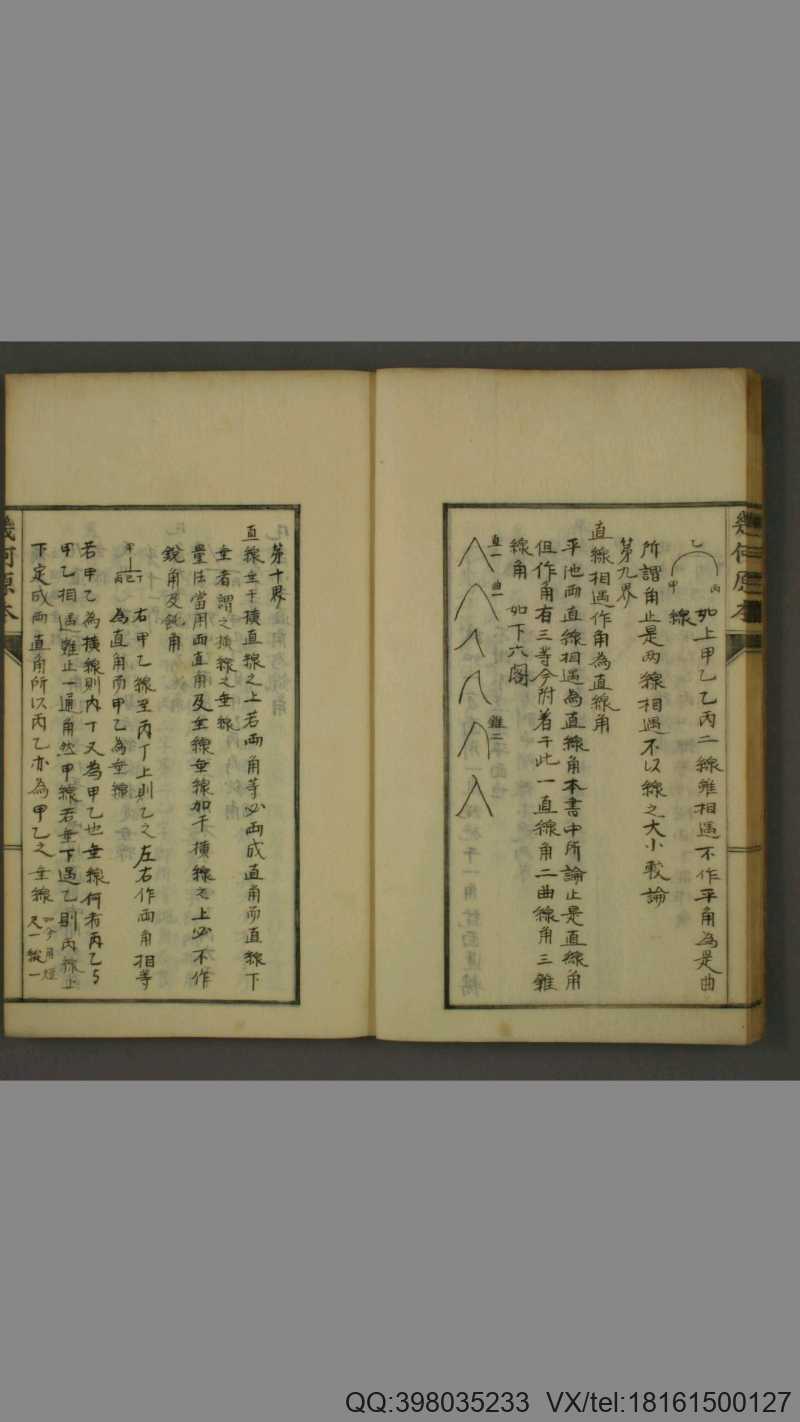 幾何原本
乙
丙
甲
如上甲乙乙丙二線雖相遇不作平角為是曲
線
所謂角止是两線相遇不以線之大小較論
第九界
直線相遇作角為直線角
平地兩直線相遇為直線角本書中所論止是直線角
但作角有三等今附着于此一直線角二曲線角三雜
線角 如下六圖
直一
曲一
雜二
第十界
直線垂于横直線之上若兩角等必兩成直角而直線下
垂者謂之横線之垂線
量法當用兩直角及垂線垂線加于横線之上必不作
銳角及鈍角
甲
丙乙丁
右甲乙線至丙丁上則乙之左右作兩角相等
為直角而甲乙為垂線
若甲乙為横線則丙丁又為甲乙也垂線何者丙乙与
甲乙相遇雖止一直角然甲線若垂下過乙則丙線上
下定成兩直角所以丙乙亦為甲乙之垂線
又一縱一
幾何原本
QQ:398035233 VX/tel:18161500127